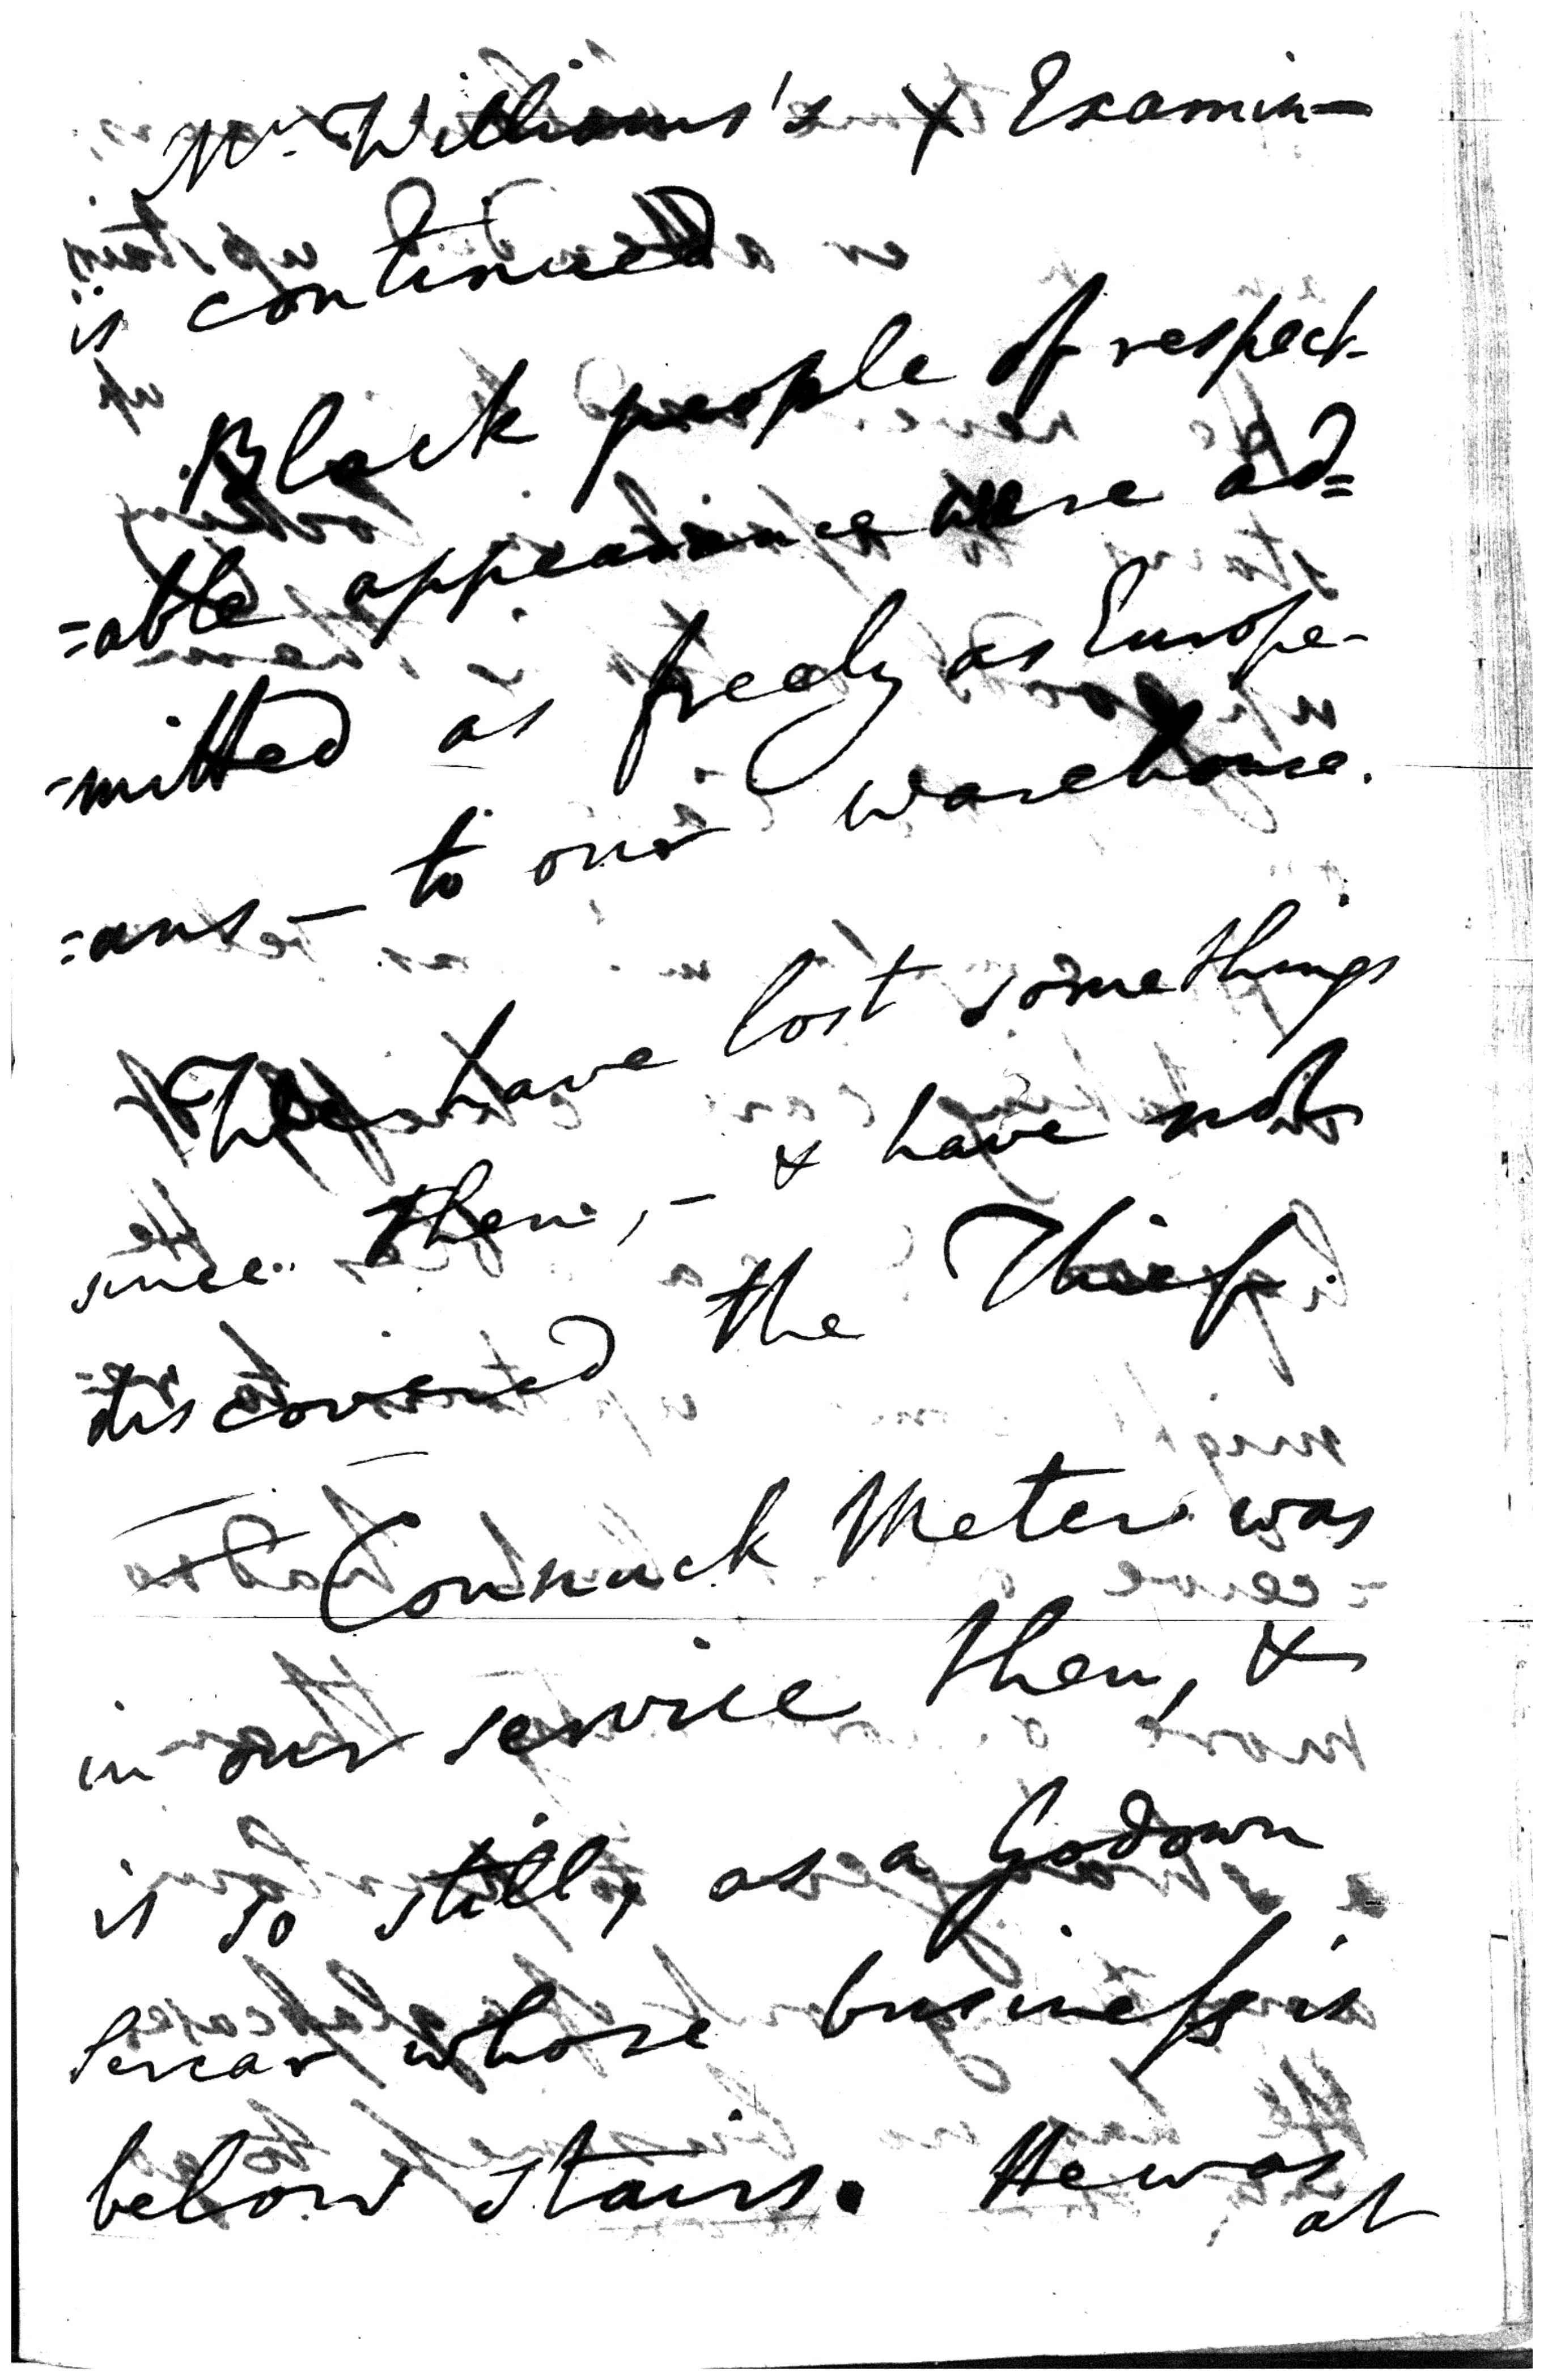 Mr. Williams's X Examin-
is continued
Black people of respect-
=able appearance were ad=
-mitted as freely as Europe-
=ans — to our warehouse.
have lost some things
since then, — & have not
discovered the Thief
— Connuck Meter was
in our service then, &
is so still, as a Godown
Sercar whose business is
below stairs. He was
at